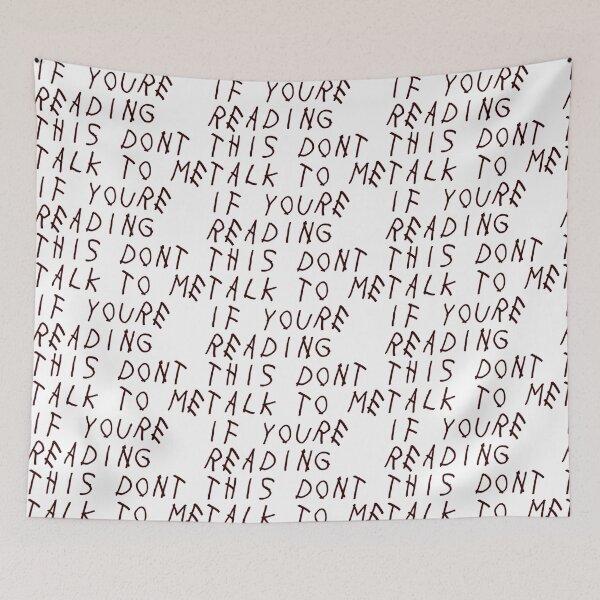 IF YOURE IF YOURE IF YOURE
READING READING READING
THIS DONT THIS DONT THIS DONT
TALK TO ME TALK TO ME TALK TO ME
IF YOURE IF YOURE IF YOURE
READING READING READING
THIS DONT THIS DONT THIS DONT
TALK TO ME TALK TO ME TALK TO ME
IF YOURE IF YOURE IF YOURE
READING READING READING
THIS DONT THIS DONT THIS DONT
TALK TO ME TALK TO ME TALK TO ME
IF YOURE IF YOURE IF YOURE
READING READING READING
THIS DONT THIS DONT THIS DONT
TALK TO ME TALK TO ME TALK TO ME